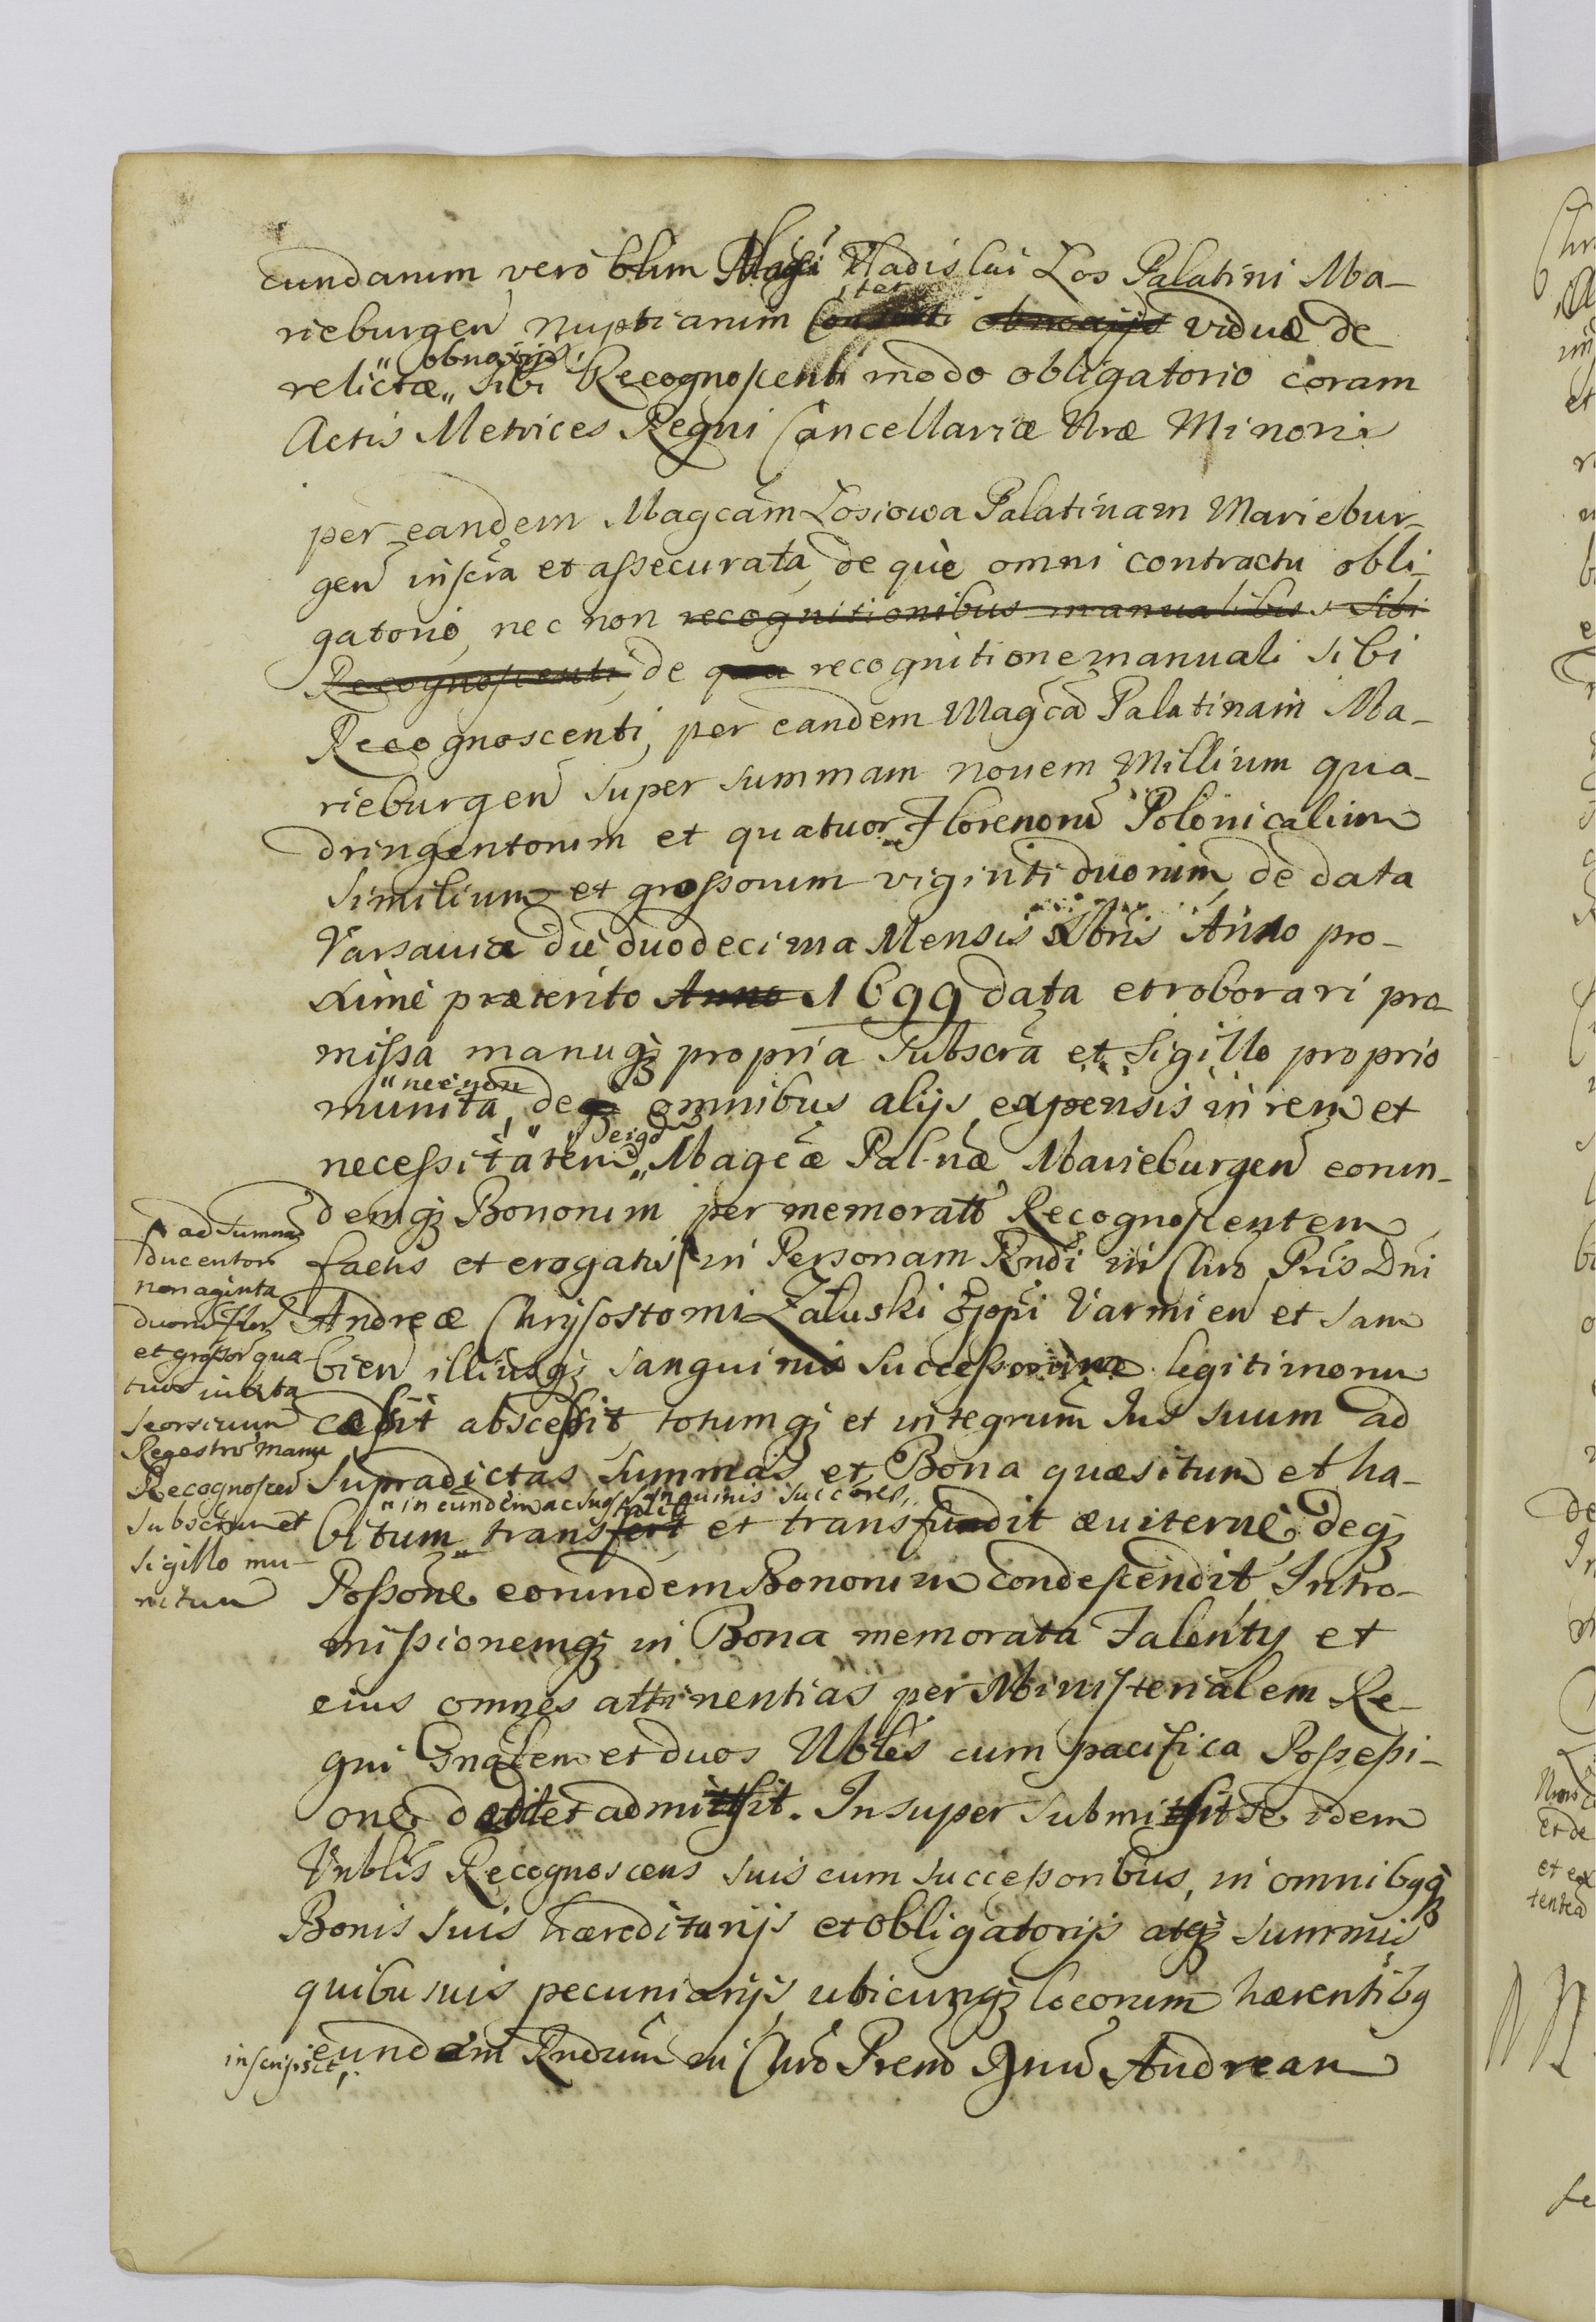 cundarum vero olim Magci Vladislai Łos Palatini Ma-
rieburgen nuptiarum obnoxijs viduæ de
relictæ „ obnoxijs, sibi Recognoscenti modo obligatorio coram
Actis Metrices Regni Cancellariæ Nræ Minoris
per eandem Magcam Łosiowa Palatinam Mariebur-
gen inscra et assecurata, de què omni contractu obli-
gatorio, nec non recognitionibus manualibus sibi
Recognoscenti, de qua recognitione manuali sibi
Recognoscenti, per eandem Magca Palatinam Ma-
rieburgen super summam novem Millium qua-
dringentorum et quatuor Florenoru Polonicalium
similium et grossorum viginti duorum, de data
Varsaviæ die duodecima Mensis Xbris Anno pro-
xime præterito Anno 1699 data et roborari pro-
missa manuqz propria subscra et sigillo proprio
munita, „ necnon de omnibus alijs expensis in rem et
necessitatem „ Magcæ Pal-næ Marieburgen eorun-
demqz Bonorum per memoratu Recognoscentem
factis et erogatis in Personam Rndi in Chro Pris Dni
Andreæ Chrysostomi Załuski Eppi Varmien et Sam
bien illiusqz sanguinis Successorum legitimoru
cessit abscessit, totumqz et integrum Jus suum ad
supradictas summas et Bona quæsitum et ha-
„ in eundem ac suos sanguinis succores „
bitum „ transfert et transfundit æviterne, deqz
Possone eorundem Bonorum condescendit Intro-
missionemqz in Bona memorata Falenty et
eius omnes attinentias per Ministerialem Re-
gni Gnalem et duos Nobles cum pacifica Possessi-
one dedit et admisit. Insuper submisit se idem
Vrblis Recognoscens suis cum successoribus, in omnibqz
Bonis suis hæreditarijs et obligatorijs atqz summis
quibusvis pecuniarijs, ubicunqz locorum hærentibq
inscripsit, eundem Rndum in Chro Prem Dnu Andream
ad Summa
ducentor
nonaginta
duoru flor
et grossor qua
tuor iuxta
seorsivum
Regestro manu
Recognoscen
subsctum et
sigillo mu-
nitum